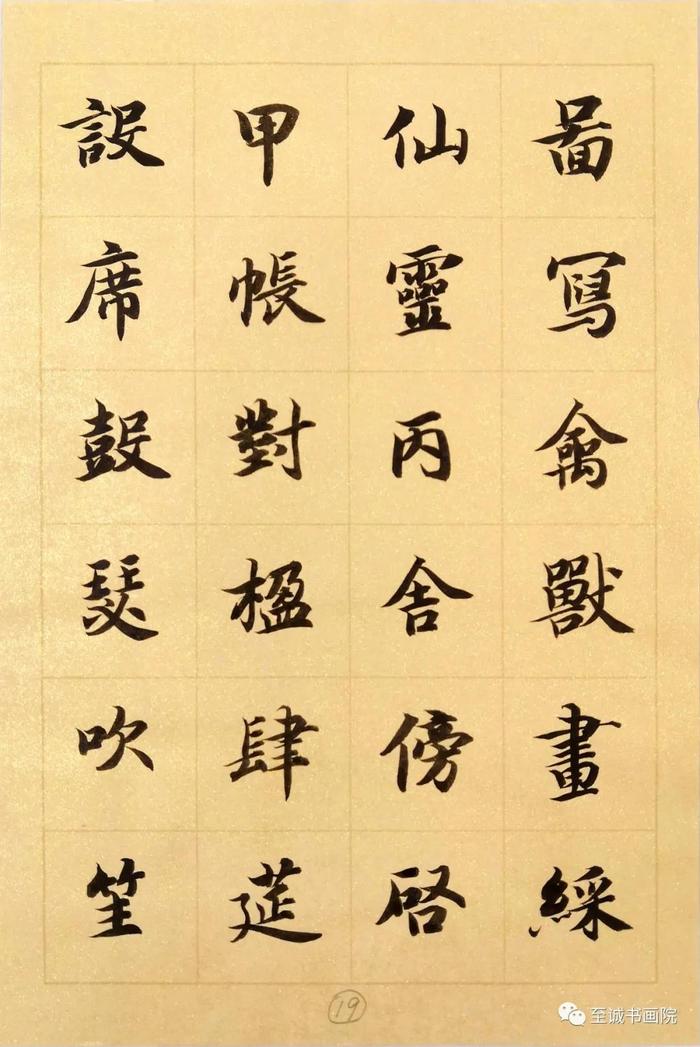 啚寫禽獸畫綵
仙靈丙舍傍啓
甲帳對楹肆莚
設席鼓瑟吹笙
19
至诚书画院